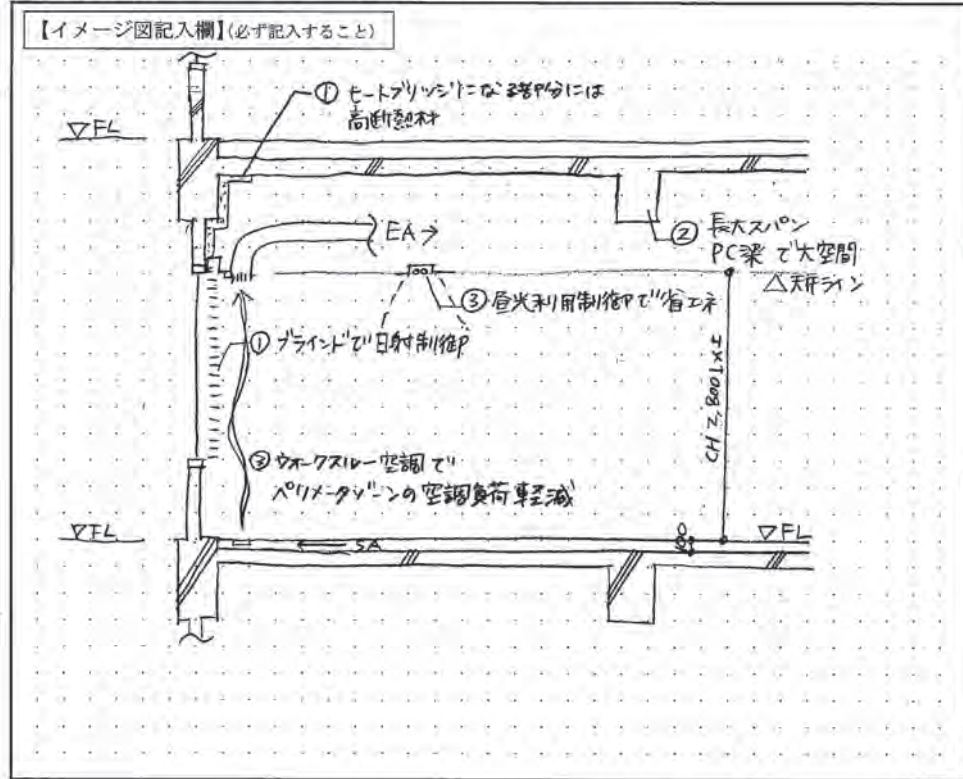 【イメージ図記入欄】(必ず記入すること)
① ヒートブリッジになる部分には
高断熱材
▽FL
EA→
② 長大スパン
PC梁で大空間
△天井ライン
③ 昼光利用制御で省エネ
① ブラインドで日射制御
CH≧2800以上
③ ウォークスルー空調で
ペリメータゾーンの空調負荷軽減
▽FL
SA
100
▽FL